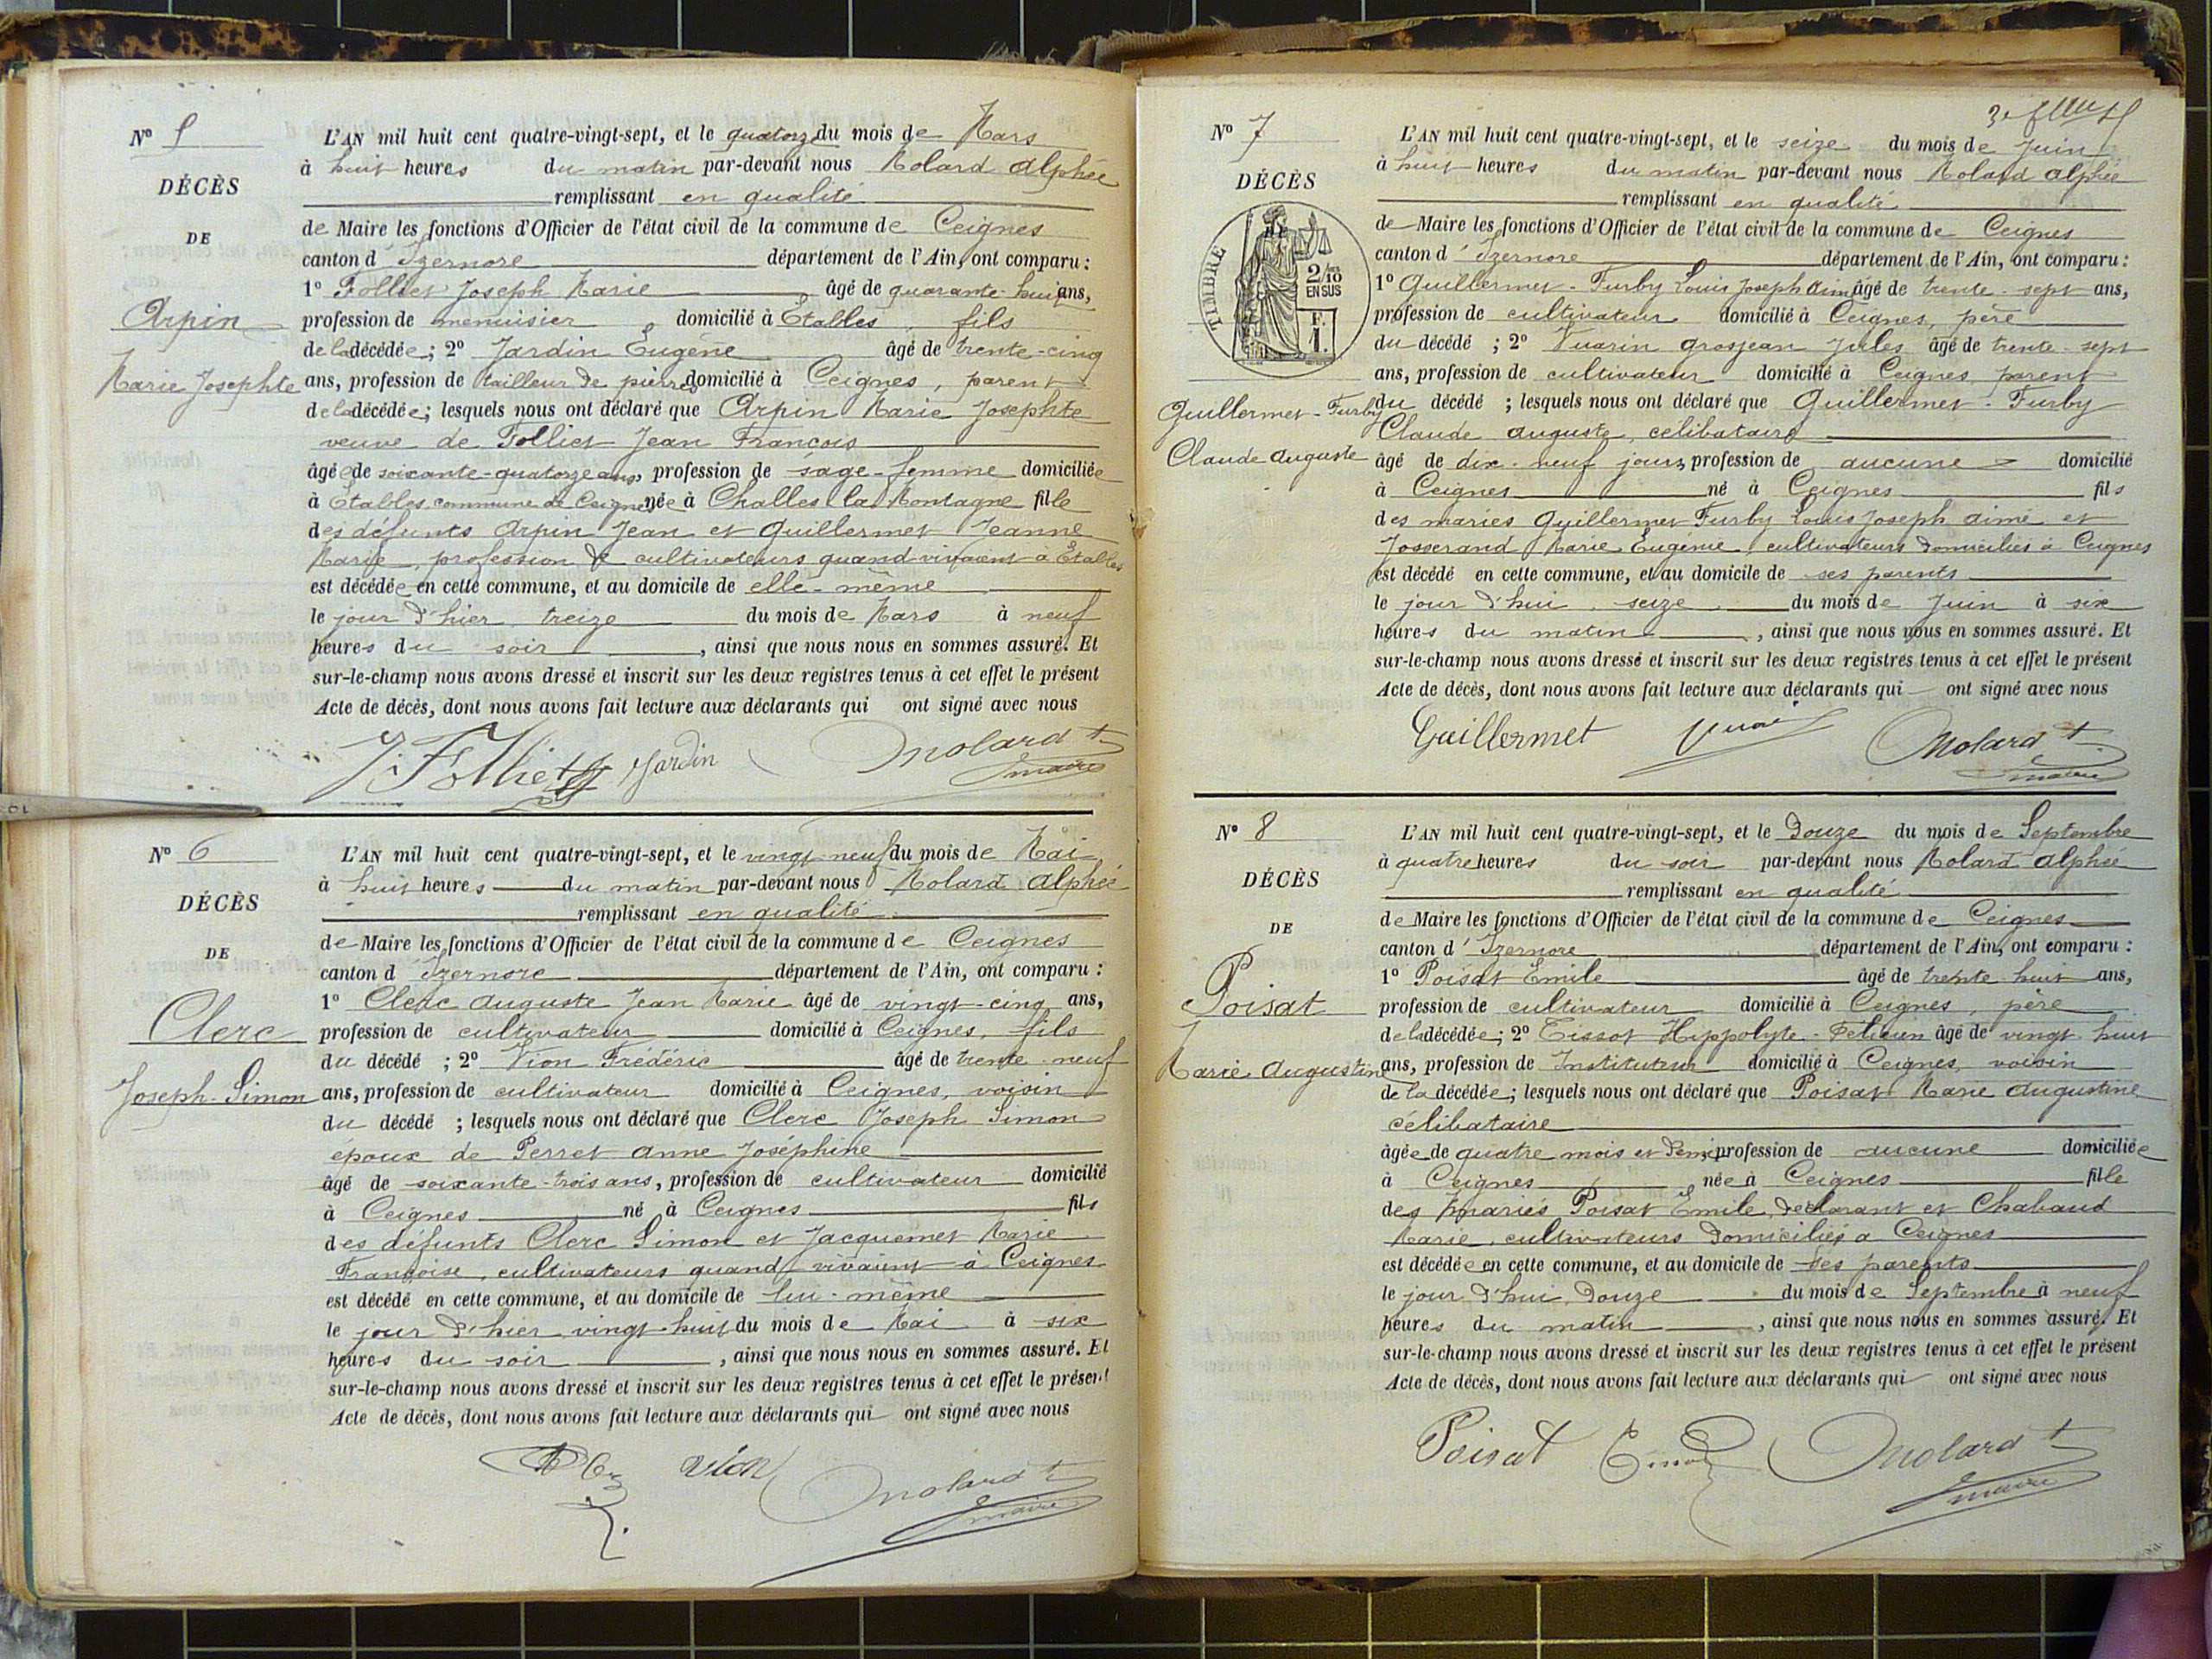 N° 5
DÉCÈS
DE
Arpin
Marie Josephte
L'AN mil huit cent quatre-vingt-sept, et le quatorze du mois de Mars
à huit heures du matin par-devant nous Molard Alphée
remplissant en qualité
de Maire les fonctions d'Officier de l'état civil de la commune de Ceignes
canton d'Izernore département de l'Ain, ont comparu :
1° Folliet Joseph Marie âgé de quarante-huit ans,
profession de menuisier domicilié à Étables, fils
de la décédée ; 2° Jardin Eugène âgé de trente-cinq
ans, profession de tailleur de pierres domicilié à Ceignes, parent
de la décédée ; lesquels nous ont déclaré que Arpin Marie Josephte
veuve de Folliet Jean François
âgée de soixante-quatorze ans, profession de sage-femme domiciliée
à Étables, commune de Ceignes née à Challes la Montagne fille
des défunts Arpin Jean et Guillermet Jeanne
Marie, profession de cultivateurs quand vivaient à Étables
est décédée en cette commune, et au domicile de elle-même
le jour d'hier treize du mois de Mars à neuf
heures du soir, ainsi que nous nous en sommes assuré. Et
sur-le-champ nous avons dressé et inscrit sur les deux registres tenus à cet effet le présent
Acte de décès, dont nous avons fait lecture aux déclarants qui ont signé avec nous
J. Folliet Jardin Molard
maire
N° 6
DÉCÈS
DE
Clerc
Joseph-Simon
L'AN mil huit cent quatre-vingt-sept, et le vingt-neuf du mois de Mai
à huit heures du matin par-devant nous Molard Alphée
remplissant en qualité
de Maire les fonctions d'Officier de l'état civil de la commune de Ceignes
canton d'Izernore département de l'Ain, ont comparu :
1° Clerc Auguste Jean Marie âgé de vingt-cinq ans,
profession de cultivateur domicilié à Ceignes, fils
du décédé ; 2° Vion Frédéric âgé de trente-neuf
ans, profession de cultivateur domicilié à Ceignes, voisin
du décédé ; lesquels nous ont déclaré que Clerc Joseph Simon
époux de Perret Anne Joséphine
âgé de soixante-trois ans, profession de cultivateur domicilié
à Ceignes né à Ceignes fils
des défunts Clerc Simon et Jacquemet Marie
Françoise, cultivateurs quand vivaient à Ceignes
est décédé en cette commune, et au domicile de lui-même
le jour d'hier vingt-huit du mois de Mai à six
heures du soir, ainsi que nous nous en sommes assuré. Et
sur-le-champ nous avons dressé et inscrit sur les deux registres tenus à cet effet le présent
Acte de décès, dont nous avons fait lecture aux déclarants qui ont signé avec nous
Vion Molard
maire
N° 7
DÉCÈS
TIMBRE
2/10
EN SUS
F.
1.
Guillermet-Furby
Claude Auguste
L'AN mil huit cent quatre-vingt-sept, et le seize du mois de Juin
à huit heures du matin par-devant nous Molard Alphée
remplissant en qualité
de Maire les fonctions d'Officier de l'état civil de la commune de Ceignes
canton d'Izernore département de l'Ain, ont comparu :
1° Guillermet-Furby Louis Joseph Aimé âgé de trente-sept ans,
profession de cultivateur domicilié à Ceignes, père
du décédé ; 2° Vuarin Grosjean Jules âgé de trente-sept
ans, profession de cultivateur domicilié à Ceignes, parent
du décédé ; lesquels nous ont déclaré que Guillermet-Furby
Claude Auguste, célibataire
âgé de dix-neuf jours, profession de aucune domicilié
à Ceignes né à Ceignes fils
des mariés Guillermet Furby Louis Joseph Aimé et
Josserand Marie Eugénie, cultivateurs domiciliés à Ceignes
est décédé en cette commune, et au domicile de ses parents
le jour d'hui, seize du mois de Juin à six
heures du matin, ainsi que nous nous en sommes assuré. Et
sur-le-champ nous avons dressé et inscrit sur les deux registres tenus à cet effet le présent
Acte de décès, dont nous avons fait lecture aux déclarants qui ont signé avec nous
Guillermet Molard
maire
N° 8
DÉCÈS
DE
Poisat
Marie Augustine
L'AN mil huit cent quatre-vingt-sept, et le Douze du mois de Septembre
à quatre heures du soir par-devant nous Molard Alphée
remplissant en qualité
de Maire les fonctions d'Officier de l'état civil de la commune de Ceignes
canton d'Izernore département de l'Ain, ont comparu :
1° Poisat Émile âgé de trente huit ans,
profession de cultivateur domicilié à Ceignes, père
de la décédée ; 2° Tissot Hippolyte-Félicien âgé de vingt huit
ans, profession de Instituteur domicilié à Ceignes, voisin
de la décédée ; lesquels nous ont déclaré que Poisat Marie Augustine
célibataire
âgée de quatre mois et demi, profession de aucune domiciliée
à Ceignes née à Ceignes fille
des mariés Poisat Émile, déclarant et Chabaud
Marie, cultivateurs domiciliés à Ceignes
est décédée en cette commune, et au domicile de ses parents
le jour d'hui, Douze du mois de Septembre à neuf
heures du matin, ainsi que nous nous en sommes assuré. Et
sur-le-champ nous avons dressé et inscrit sur les deux registres tenus à cet effet le présent
Acte de décès, dont nous avons fait lecture aux déclarants qui ont signé avec nous
Poisat Molard
maire